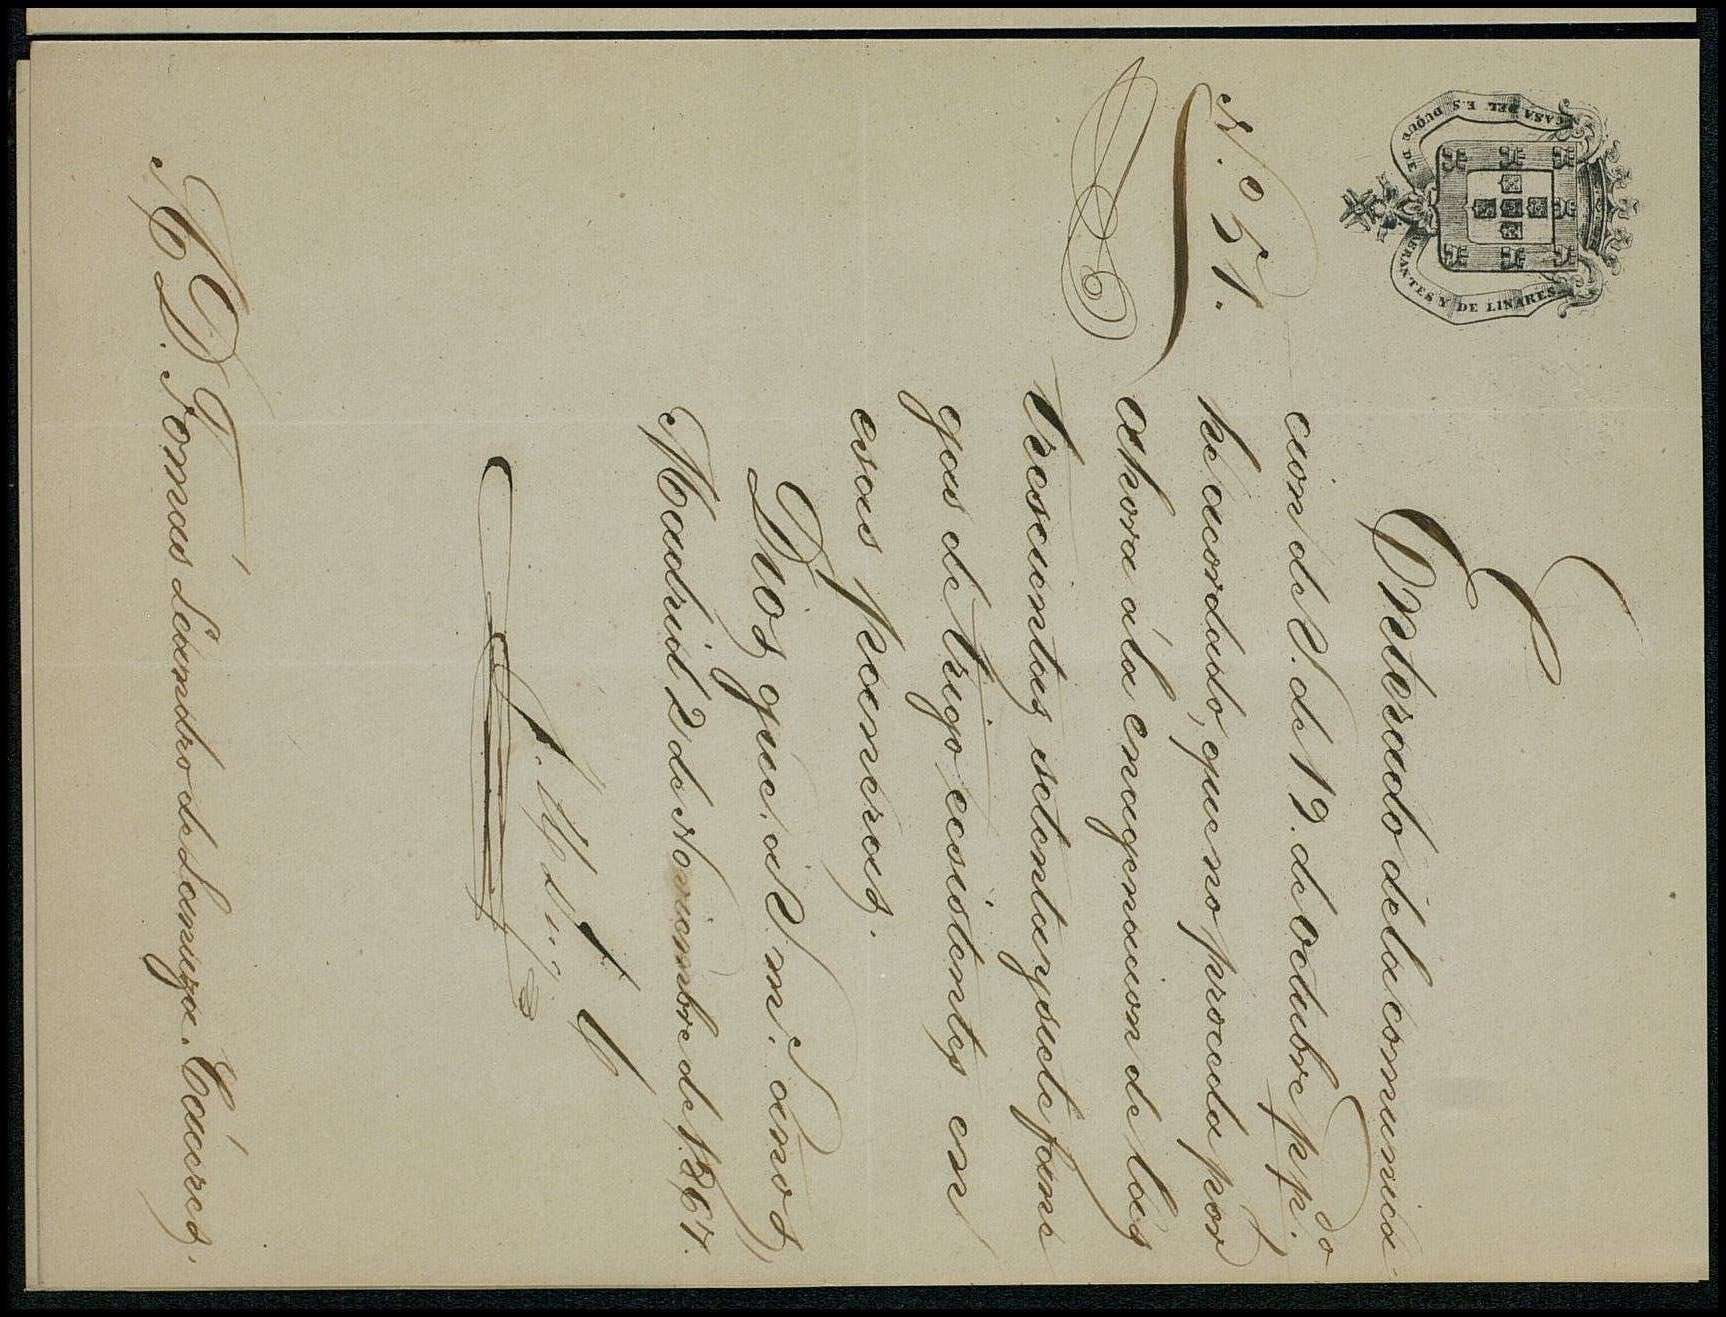 CASA DEL E.S. DUQUE DE ABRANTES Y DE LINARES
N.º 51.
Enterado de la comunica-
cion de V. de 19. de Octubre pp.do
he acordado, que no proceda por
ahora á la enagenacion de las
trescientas setenta y siete fane
gas de trigo, ecsistentes en
esas paneras.
Dios gue. á V. m.s años
Madrid 2 de Noviembre de 1864.
S. D. Tomás Leandro de Lanuza. Cáceres.